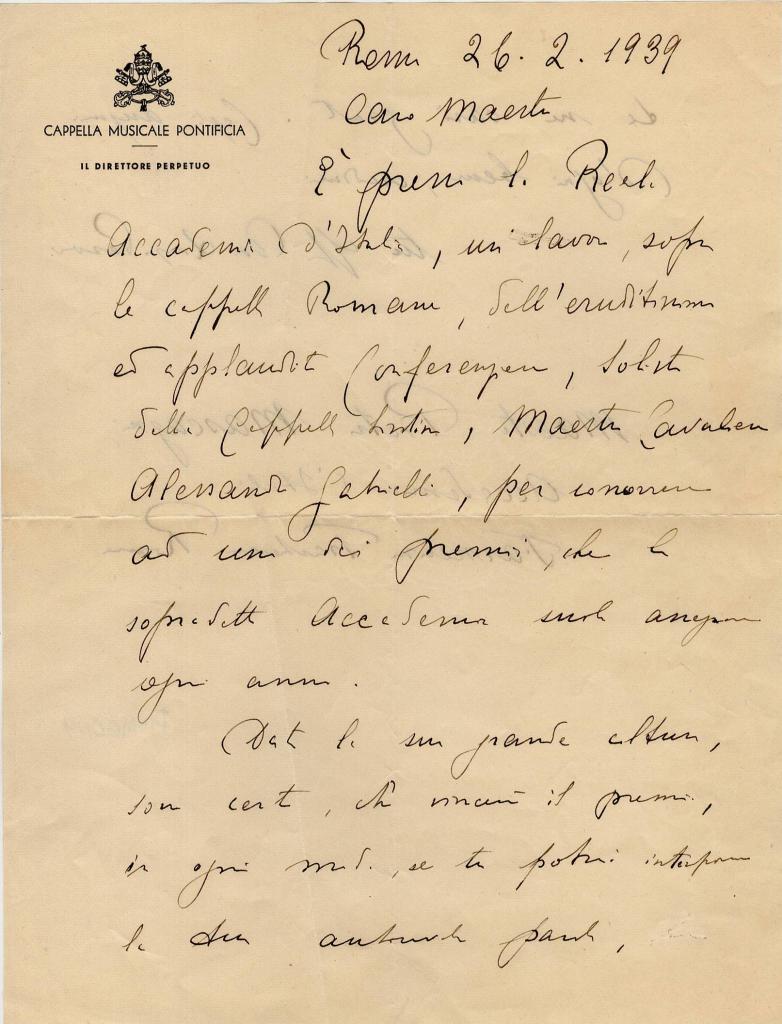 CAPPELLA MUSICALE PONTIFICIA
IL DIRETTORE PERPETUO
Roma 26.2.1939
Caro Maestro
È presso la Reale
Accademia d'Italia, un lavoro, sopra
le cappelle Romane, dell'eruditissimo
ed applaudito Conferenziere, Solista
della Cappella Sistina, Maestro Cavaliere
Alessandro Gabrielli, per concorrere
ad uno dei premi, che la
sopradetta Accademia suole assegnare
ogni anno.
Data la sua grande cultura,
sono certo, che vincerà il premio,
in ogni modo, se tu potrai interporre
la tua autorevole parola,